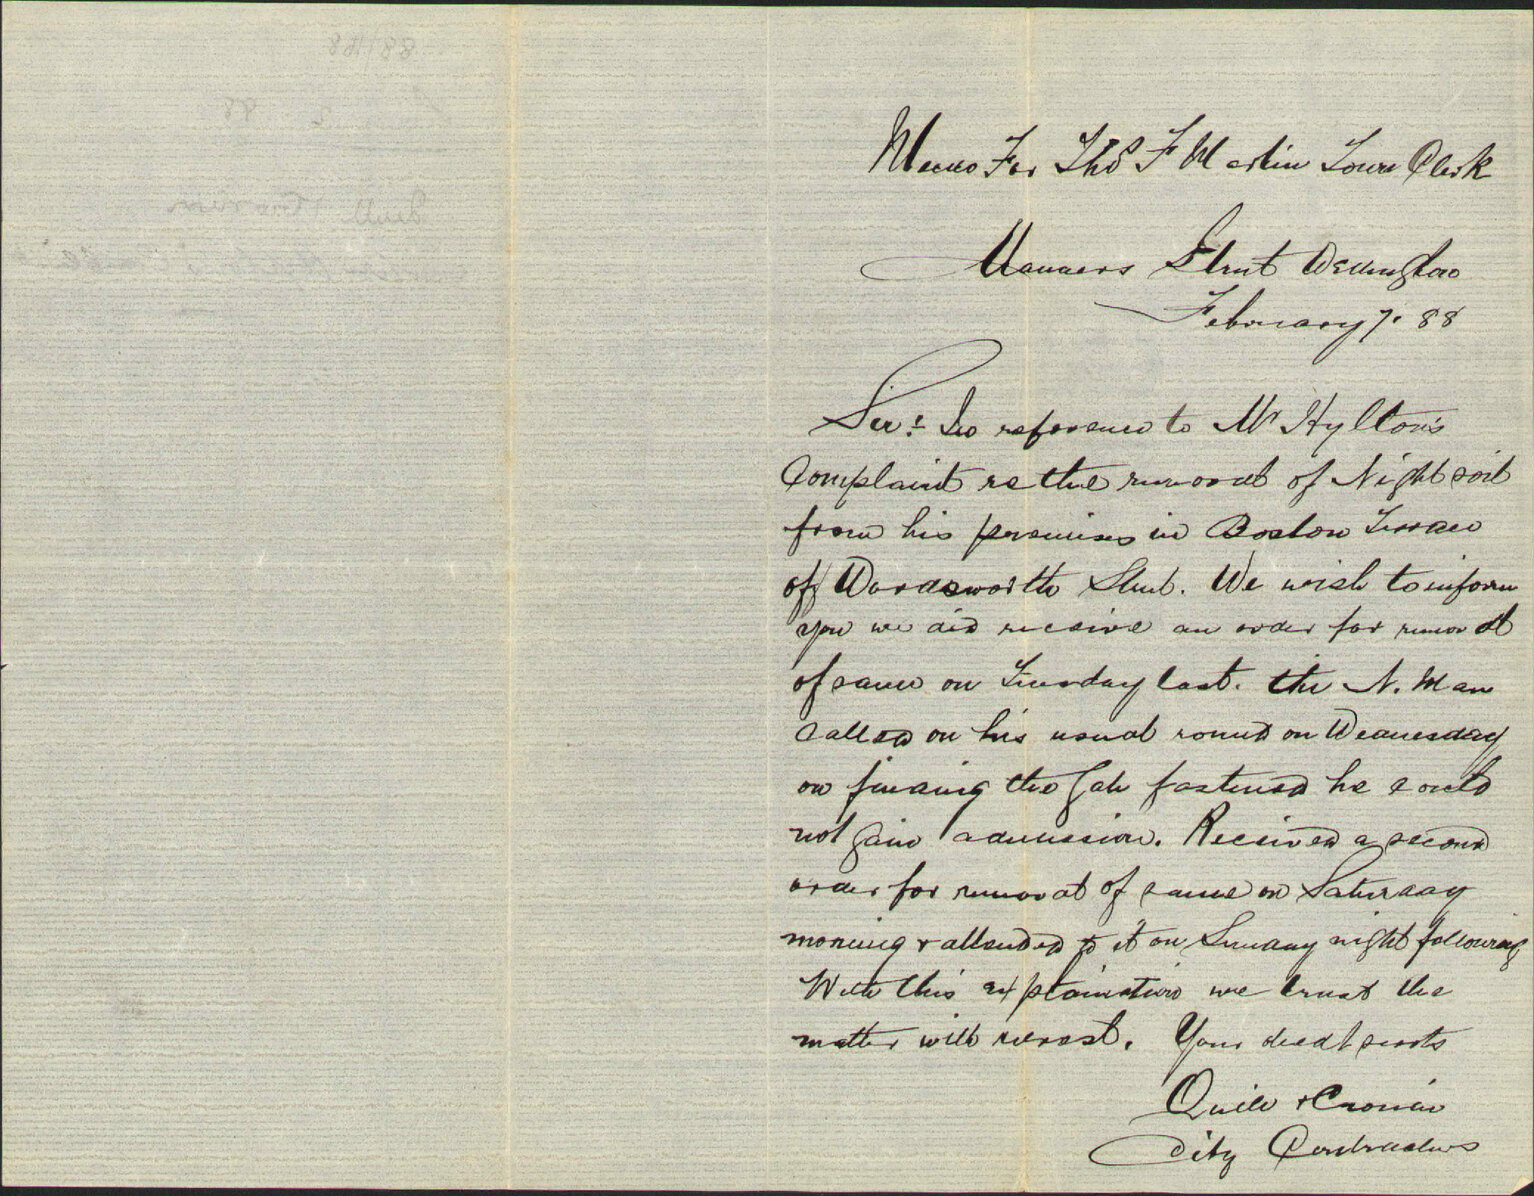 Memo For Thos F Martin Town Clerk
Manners Street Wellington
February 7. 88
Sir: In reference to Mr Hylton's
Complaint re the removal of Night soil
from his premises in Boston Terrace
off Wordsworth Street. We wish to inform
you we did receive an order for removal
of same on Tuesday last. the N. Man
called on his usual round on Wednesday
on finding the Gate fastened he could
not gain admission. Received a second
order for removal of same on Saturday
morning & attended to it on Sunday night following
With this explaination we trust the
matter will
Your
Quill & Cronin
City Contractors